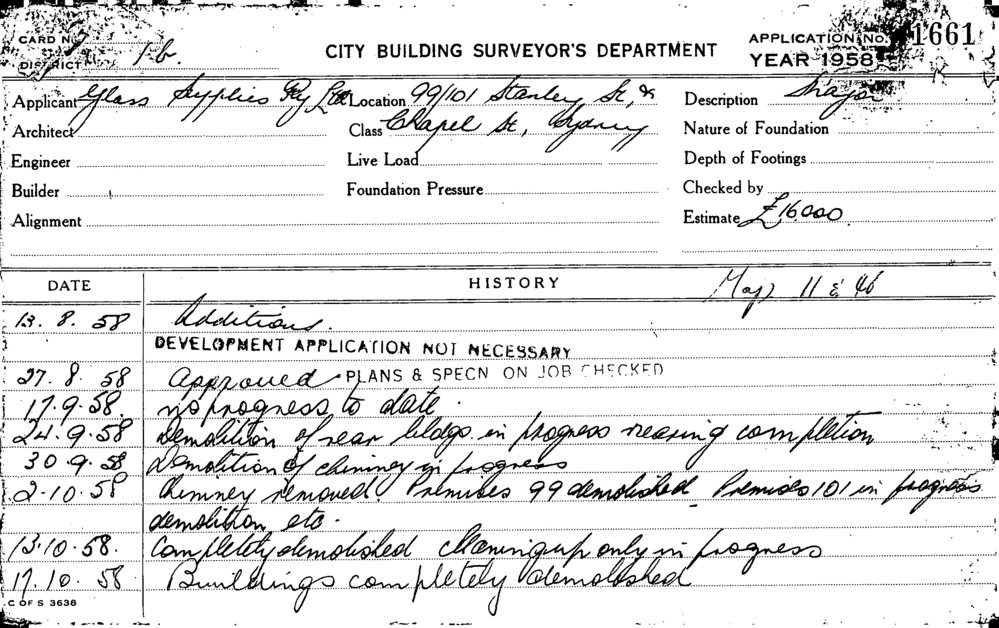 CARD No.
CITY BUILDING SURVEYOR'S DEPARTMENT
APPLICATION No. 1661
DISTRICT 1b.
YEAR 1958
Applicant Glass Supplies Pty Ltd Location 99/101 Stanley St, & Description Major
Architect Class Chapel St, Sydney Nature of Foundation
Engineer Live Load Depth of Footings
Builder Foundation Pressure Checked by
Alignment Estimate £16000
DATE HISTORY Map 11 & 46
13. 8. 58 Additions.
DEVELOPMENT APPLICATION NOT NECESSARY
27. 8. 58 Approved PLANS & SPECN ON JOB CHECKED
17.9.58. no progress to date.
24.9.58 Demolition of rear bldgs. in progress nearing completion
30.9.58 Demolition of chimney in progress
2.10.58 Chimney removed. Premises 99 demolished Premises 101 in progress
demolition etc.
13.10.58. Completely demolished cleaning up only in progress
17.10.58 Buildings completely demolished
C OF S 3638